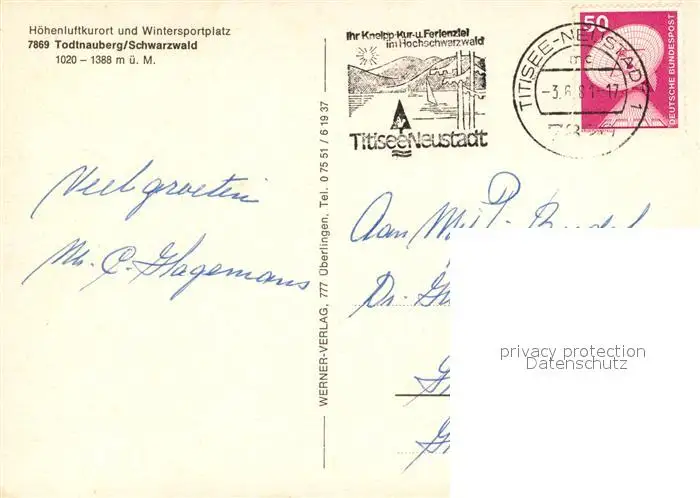 Höhenluftkurort und Wintersportplatz
7869 Todtnauberg/Schwarzwald
1020 – 1388 m ü. M.
Veel groeten
C. Hagemans
WERNER-VERLAG, 777 Überlingen, Tel. 0 75 51 / 6 19 37
Ihr Kneipp-Kur-u. Ferienziel
im Hochschwarzwald
TitiseeNeustadt
TITISEE-NEUSTADT 1
mc
-3.6.81-17
50
DEUTSCHE BUNDESPOST
Aan
Dr.
privacy protection
Datenschutz